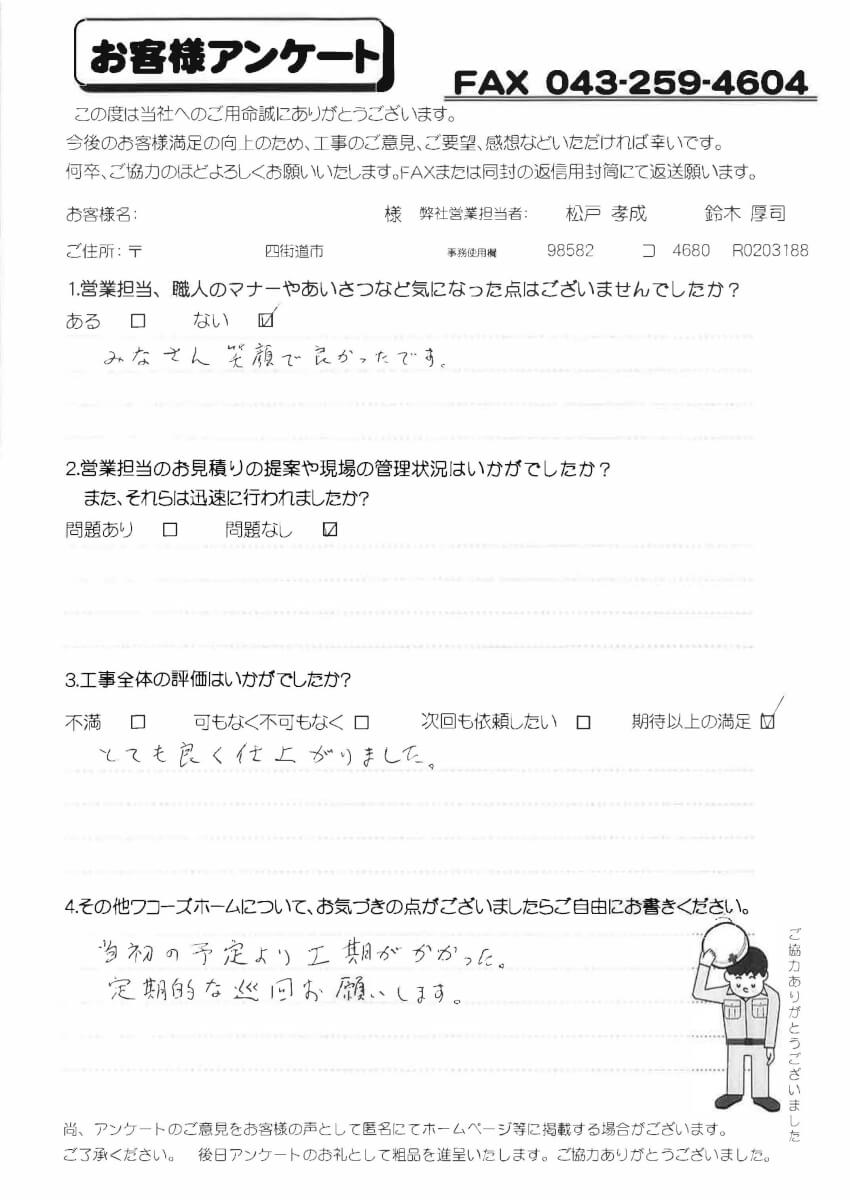 お客様アンケート
FAX 043-259-4604
この度は当社へのご用命誠にありがとうございます。
今後のお客様満足の向上のため、工事のご意見、ご要望、感想などいただければ幸いです。
何卒、ご協力のほどよろしくお願いいたします。FAXまたは同封の返信用封筒にて返送願います。
お客様名: 様 弊社営業担当者: 松戸 孝成 鈴木 厚司
ご住所:〒 四街道市 事務使用欄 98582 コ 4680 R0203188
1.営業担当、職人のマナーやあいさつなど気になった点はございませんでしたか?
ある □ ない ☑
みなさん笑顔で良かったです。
2.営業担当のお見積りの提案や現場の管理状況はいかがでしたか?
また、それらは迅速に行われましたか?
問題あり □ 問題なし ☑
3.工事全体の評価はいかがでしたか?
不満 □ 可もなく不可もなく □ 次回も依頼したい □ 期待以上の満足 ☑
とても良く仕上がりました。
4.その他ワコーズホームについて、お気づきの点がございましたらご自由にお書きください。
当初の予定より工期がかかった。
定期的な巡回お願いします。
ご協力ありがとうございました
尚、アンケートのご意見をお客様の声として匿名にてホームページ等に掲載する場合がございます。
ご了承ください。 後日アンケートのお礼として粗品を進呈いたします。ご協力ありがとうございました。